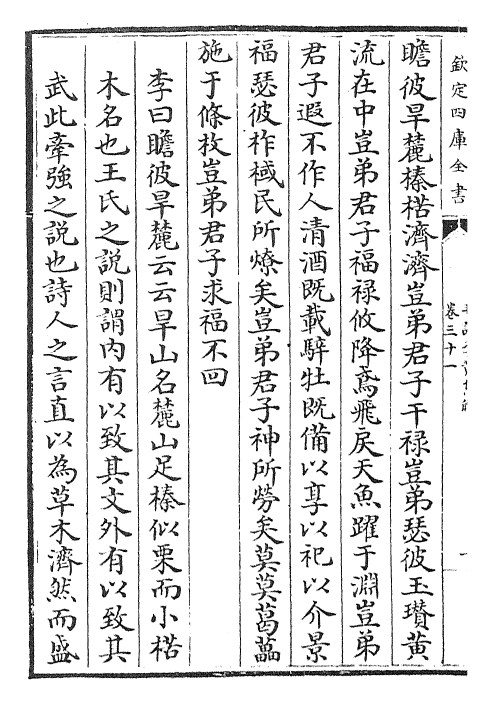 欽定四庫全書
卷三十一
瞻彼旱麓榛楛濟濟豈弟君子干禄豈弟瑟彼玉瓚黄
流在中豈弟君子福禄攸降鳶飛戾天魚躍于淵豈弟
君子遐不作人清酒既載騂牡既備以享以祀以介景
福瑟彼柞棫民所燎矣豈弟君子神所勞矣莫莫葛藟
施于條枚豈弟君子求福不回
李曰瞻彼旱麓云云旱山名麓山足榛似栗而小楛
木名也王氏之説則謂内有以致其文外有以致其
武此牽強之説也詩人之言直以為草木濟然而盛